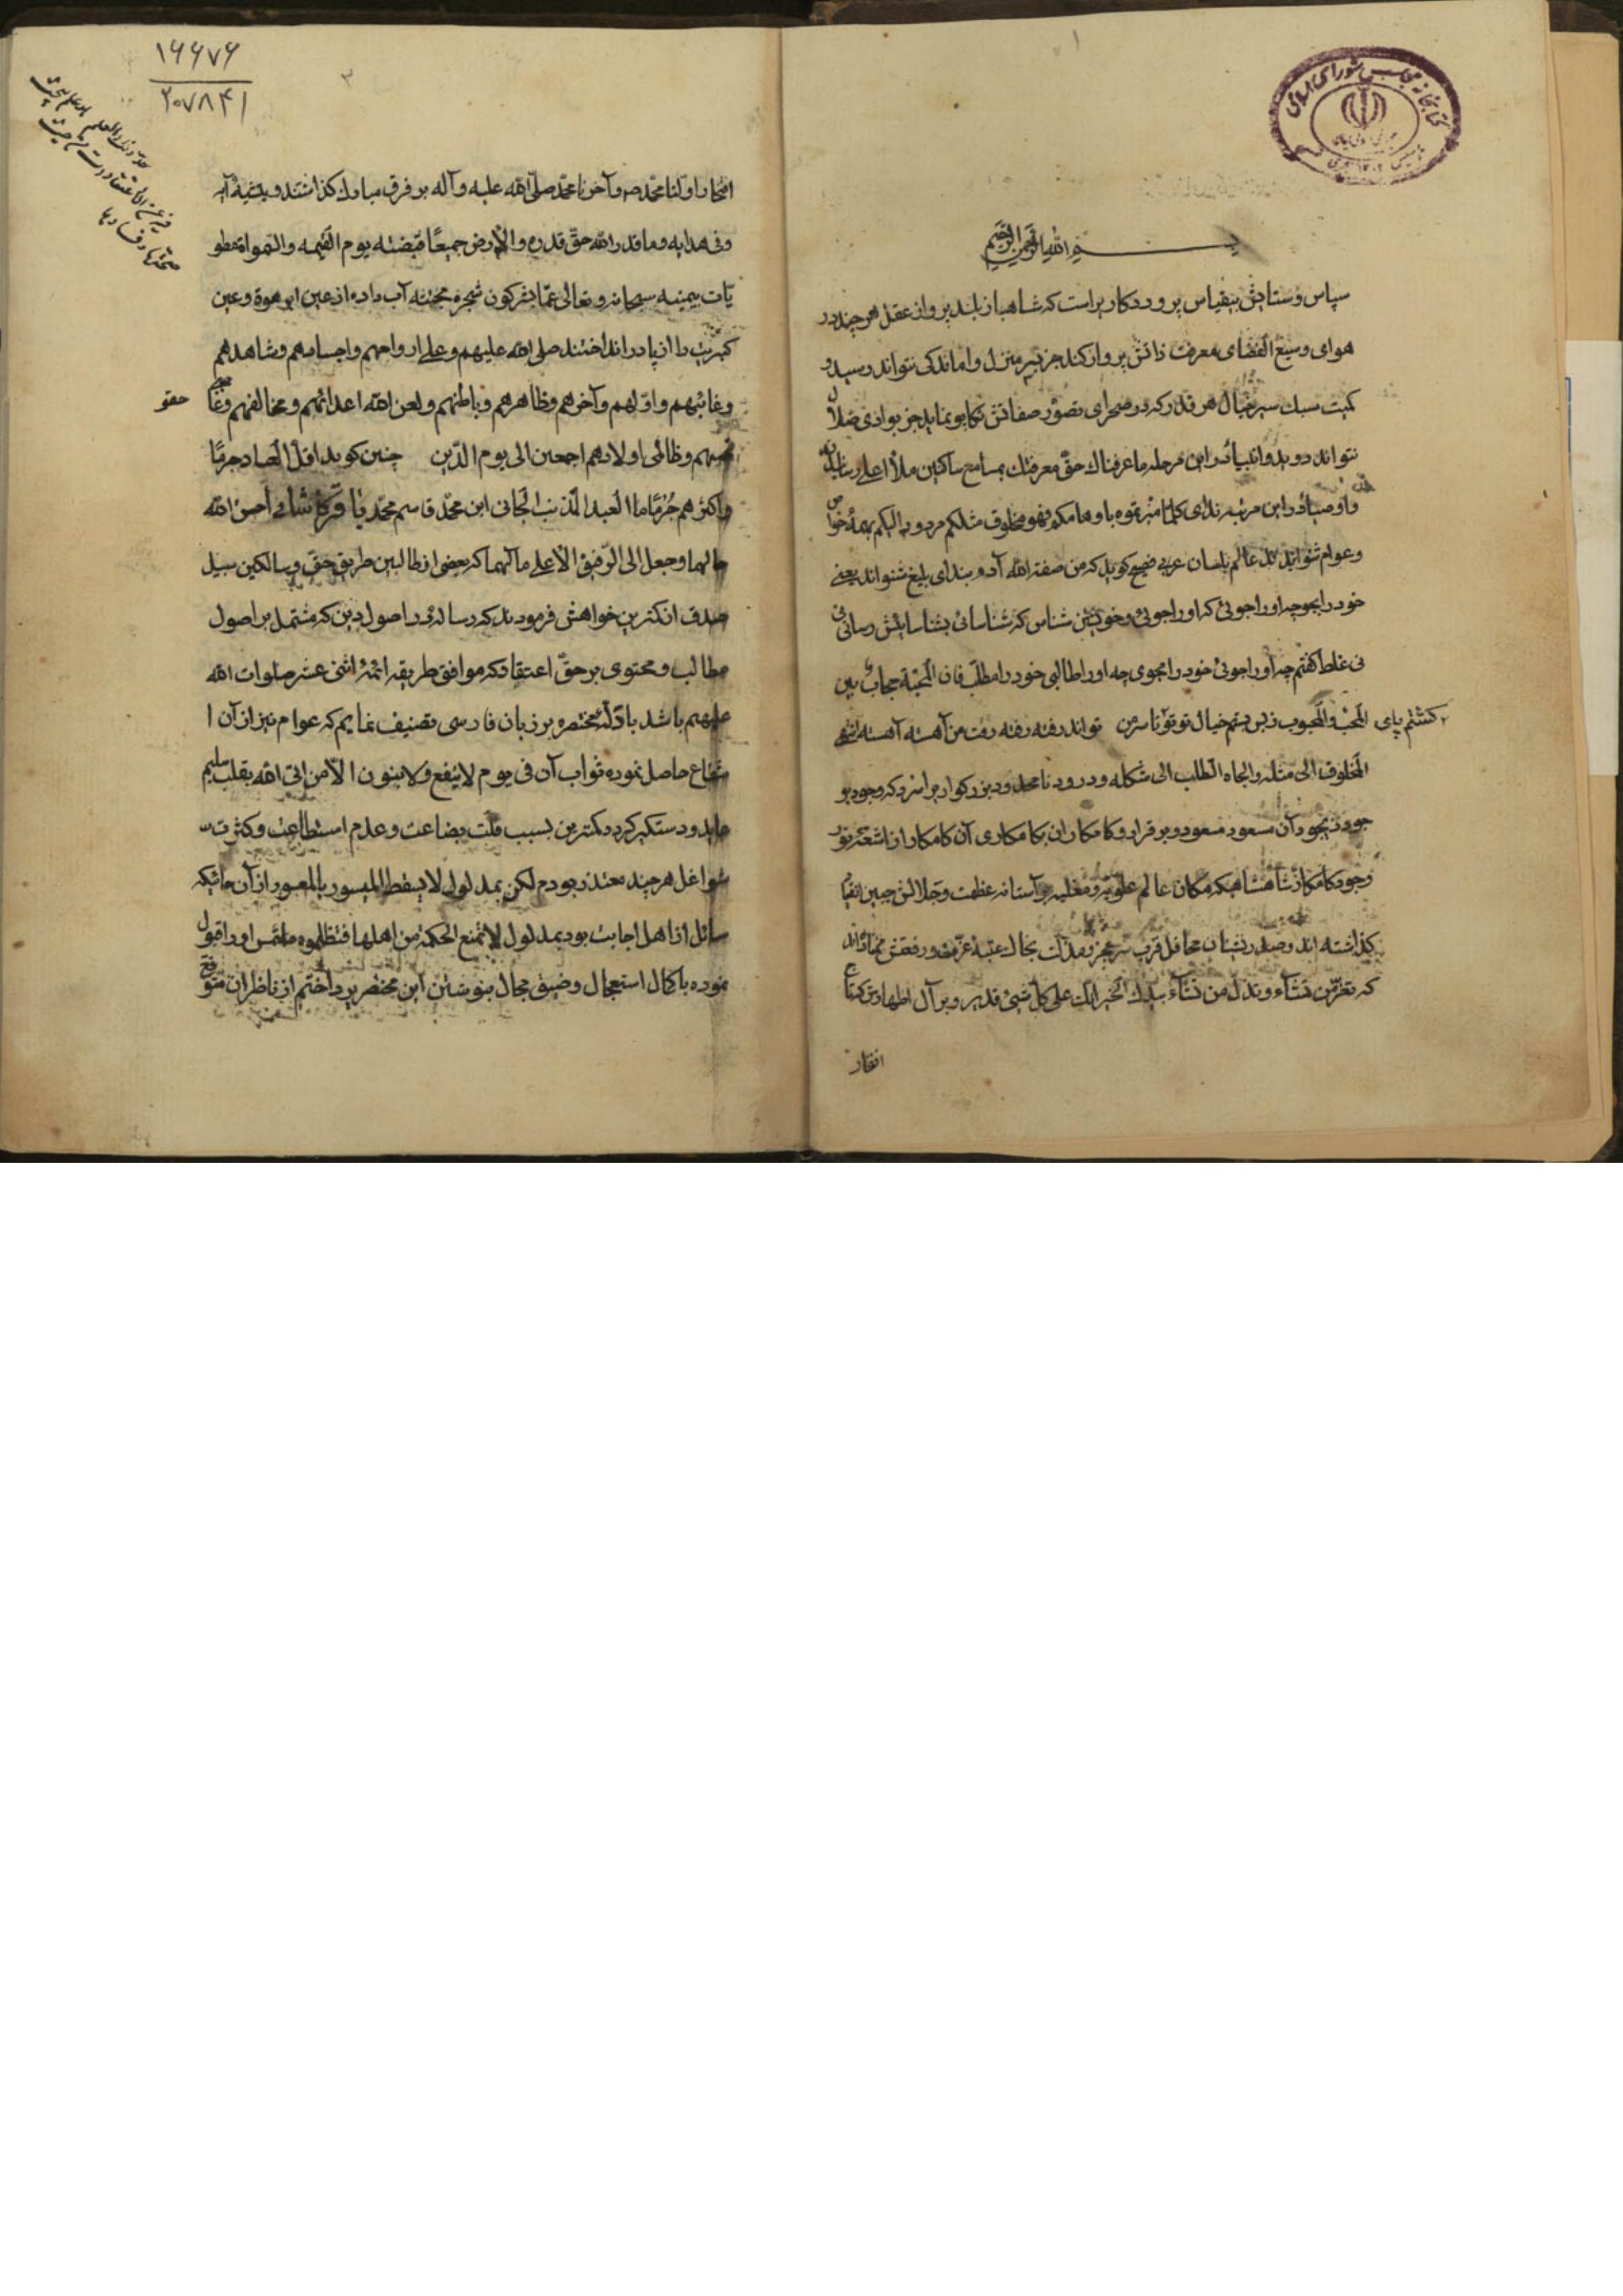 ۱
کتابخانه مجلس شورای اسلامی
بسم الله الرحمن الرحیم
سپاس و ستایش بیقیاس پروردکاریراست که شاهباز بلند پرواز عقل هر چند در
هوای وسیع الفضای معرفت ذاتش پرواز کند جز بسر منزل واماندکی نتواند رسید و
کمیت سبک سیر خیال هر قدر که در صحرای تصور صفاتش تکاپو نماید جز بوادی ضلال
نتواند دوید و انبیا در این مرحله ما عرفناک حق معرفتک بمسامع ساکنین ملأ اعلی رسانیده
و اوصیا در این مرتبه ندای کلما میزتموه باوهامکم فهو مخلوق مثلکم مردود الیکم بهمهٔ خواص
و عوام شنوانیده‌اند عالم بلسان عربی فصیح کوید که من صفة الله آدم بندای بلیغ شنواند یعنی
خود را بجو چه او را جوئی که او را جوئی و خویشتن شناس که شناسائی بشناسایش رسانی
نی غلط کفتم چه او را جوئی خود را مجوی چه او را طالبی خود را مطلب فان المحبة حجاب بین
المحب و المحبوب ز بس بستم خیال تو تو کشتم پای تا سر من تو اند رفته رفته رفت من آهسته آهسته انتهی
المخلوق الی مثله و الجاه الطلب الی شکله و درود نامحدود بزرکواریرا سزد که وجود بو
جود ذیجود آن مسعود مسعود و برقرار و کامکاران بکامکاری آن کامکار از اشعهٔ نور
وجود کامکار شاهنشاهیکه مکان عالم علویه و سفلیه بر آستانه عظمت و جلالش جبین انقیاد
بکذاشته‌اند و صدرنشینان محافل قرب سر عجز و مذلت بخاک عتبهٔ عزت و رفعتش نهاده‌اند
که تعز من تشاء و تذل من تشاء بیدک الخیر انک علی کل شیئ قدیر و بر آل اطهارش که تاج
افتخار
۱۶۶۷۶
۲۰۷۸۴۱
۳
افتخار اولنا محمد و آخرنا محمد صلی الله علیه و آله بر فرق مبارک کذاشتند و بتیشهٔ آیه
وفی هدایه وما قدر الله حق قدره والارض جمیعا قبضته یوم القیمه والسموات مطو
یات بیمینه سبحانه وتعالی عما یشرکون شجره مجتثه آب داده از عین ابرهوة و عین
کبریت را از پا در انداختند صلی الله علیهم وعلی ارواحهم واجسامهم وشاهدهم
وغائبهم واولهم وآخرهم وظاهرهم وباطنهم ولعن الله اعدائهم ومخالفهم وغا
حقو
صبهم وظالمی اولادهم اجمعین الی یوم الدین چنین کوید اقل العباد جرما
واکثرهم جرما العبد المذنب الجانی ابن محمد قاسم محمد باقر کاشانی احسن الله
حالهما وجعل الی الرفیق الاعلی مآلهما که بعضی از طالبین طریق حق و سالکین سبیل
صدق از کمترین خواهش فرمودند که رساله در اصول دین که مشتمل بر اصول
مطالب و محتوی بر حق اعتقاد که موافق طریقه ائمهٔ اثنی عشر صلوات الله
علیهم باشد بادلهٔ مختصره بر زبان فارسی تصنیف نمایم که عوام نیز از آن ا
نتفاع حاصل نموده ثواب آن فی یوم لا ینفع ولا بنون الا من اتی الله بقلب سلیم
عاید و دستکیر کردد کمترین بسبب قلت بضاعت و عدم استطاعت و کثرت
شواغل هر چند معتذر بودم لکن بمدلول لا یسقط المیسور بالمعسور از آن جائیکه
سائل از اهل اجابت بود بمدلول لا تمنع الحکمة من اهلها فتظلموه ملتمس او را قبول
نموده با کمال استعجال و ضیق مجال بنوشتن این مختصر پرداختم از ناظران متوقع